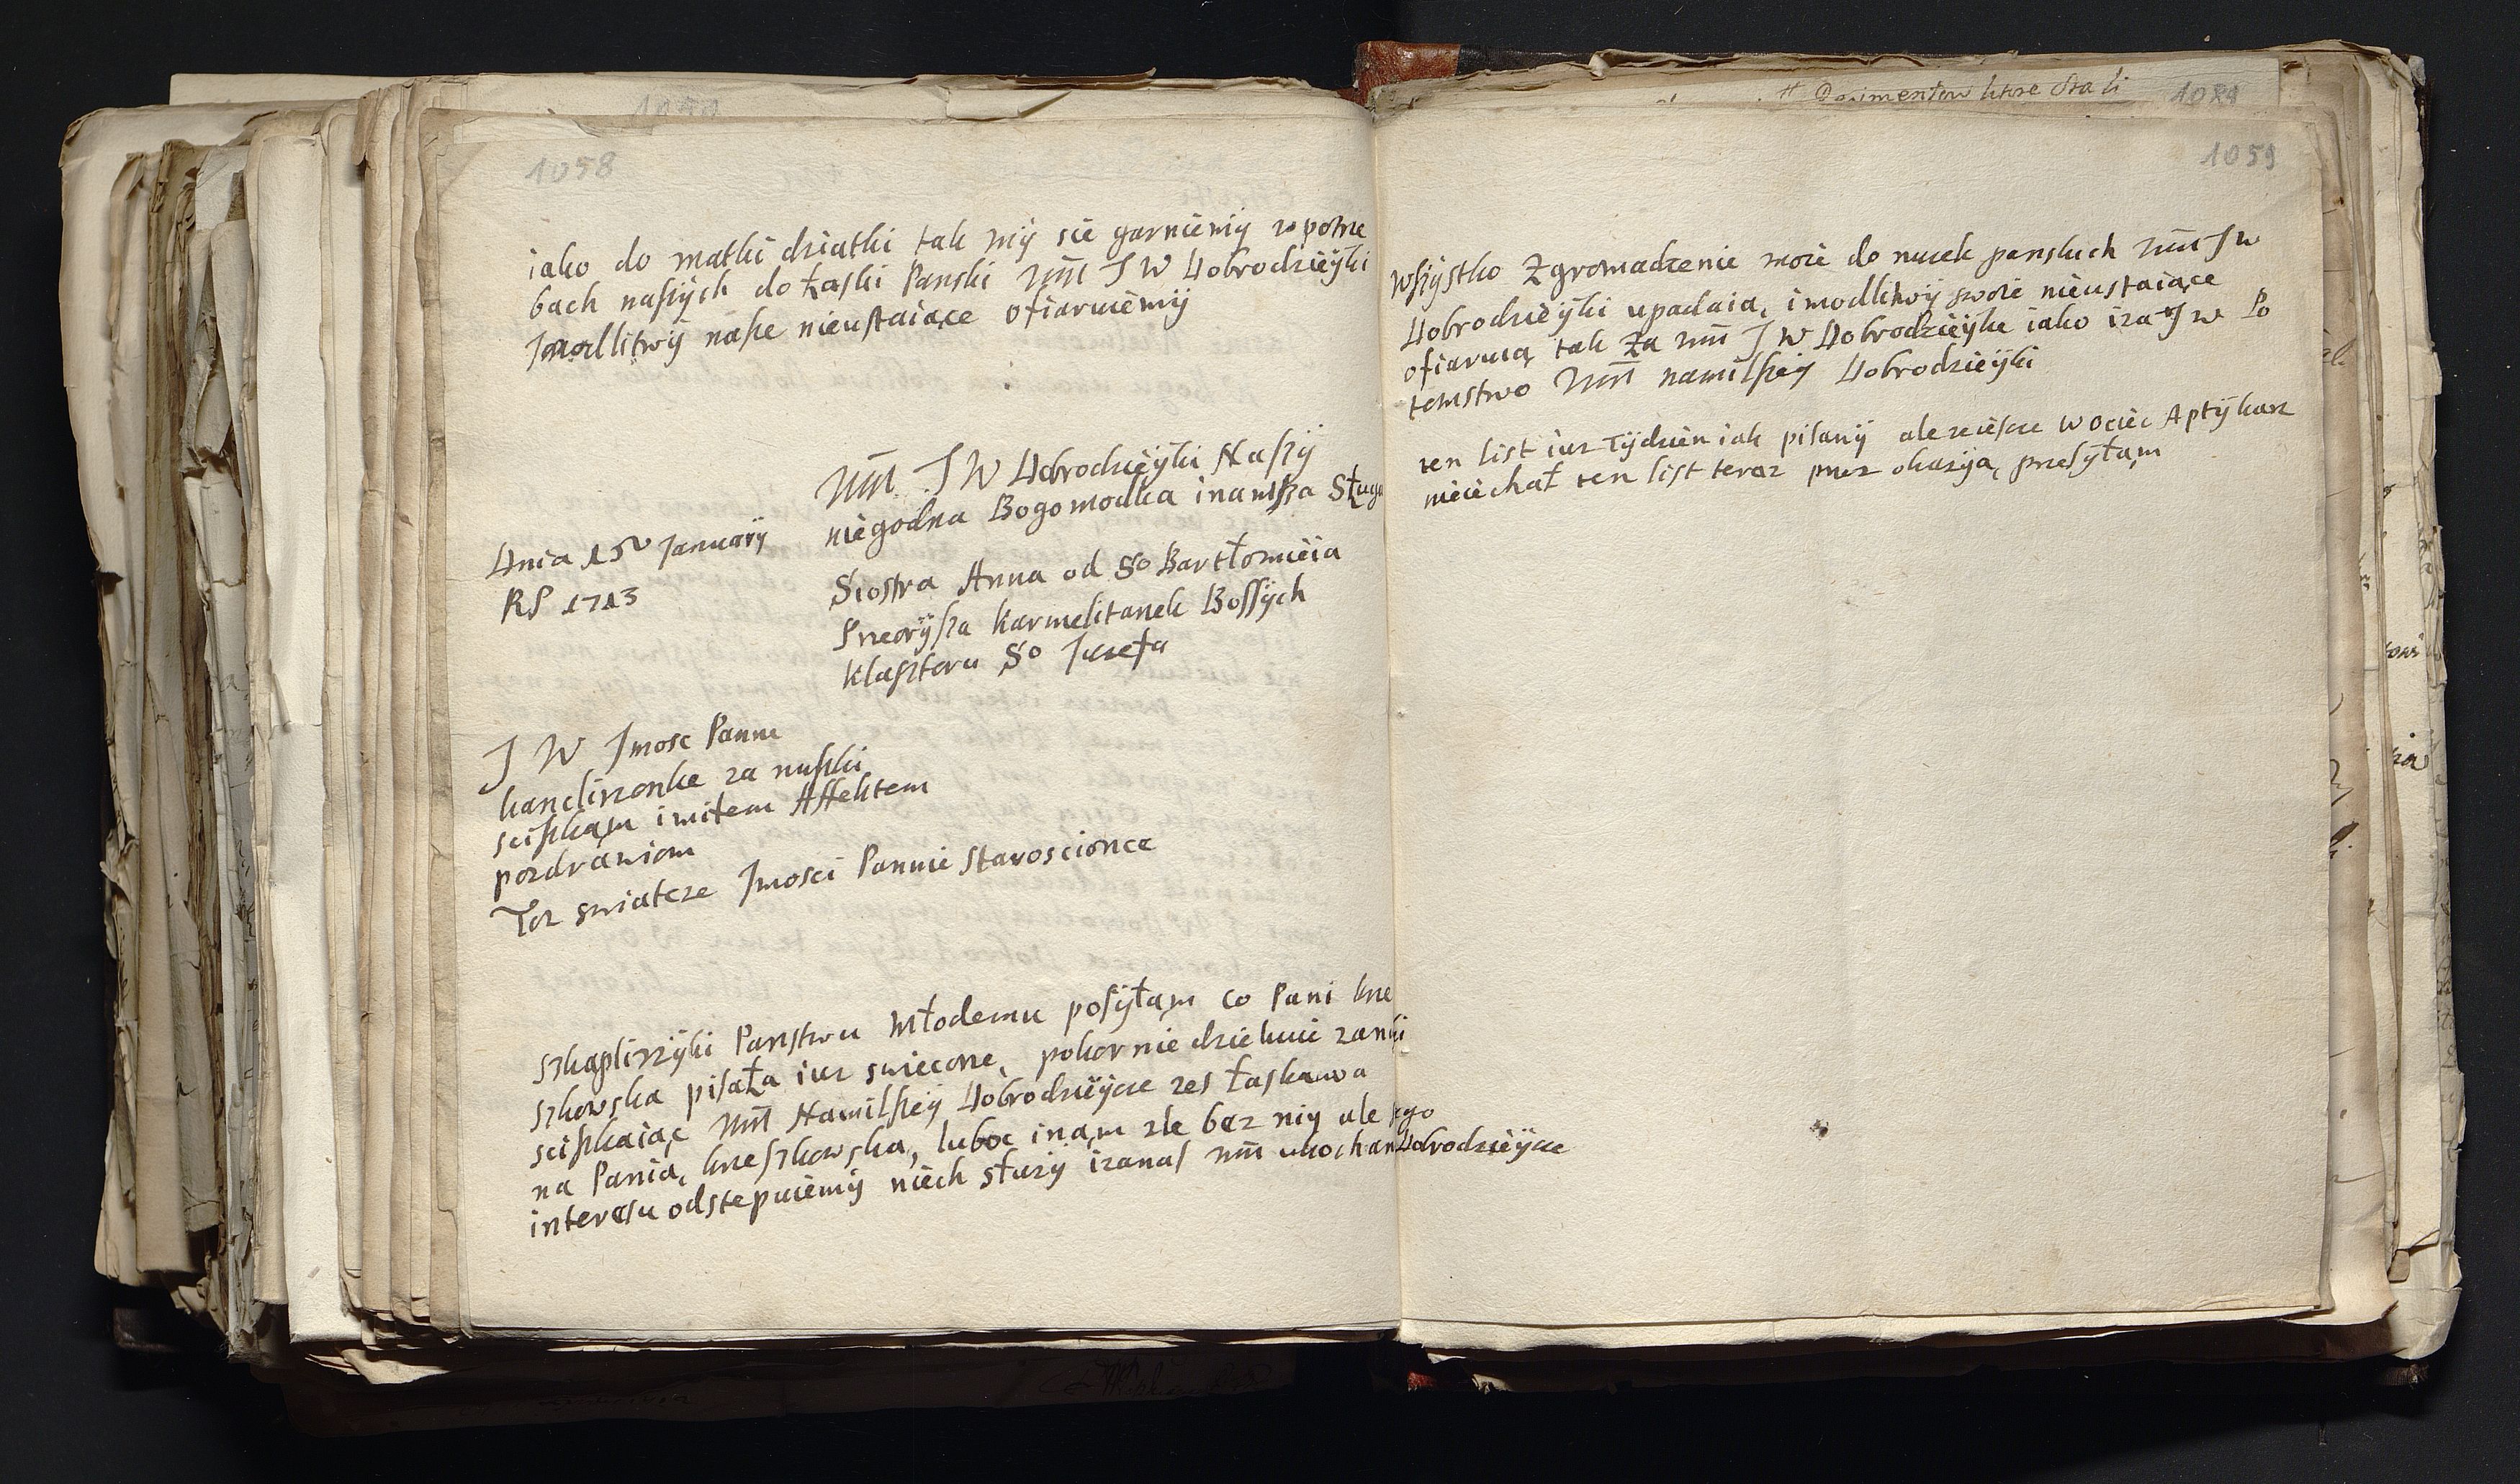 1058
iako do matki dziatki tak mÿ sie garniemÿ w potrze
bach naszÿch do łaski Panski WMM J W Dobrodzieÿki
J modlitwÿ nasze nieustaiące ofiaruiemÿ
WMM J W Dobrodzieÿki Naszÿ
niegodna Bogomodlca i nanisza Sługa
Dnia 15 Januarÿ
RP 1713
Siostra Anna od So Bartłomieia
Przeorÿsza Karmelitanek Bossÿch
Klasztoru So Juzefa
J W Jmosc Panne
kanclirzonke za nuszki
sciskąm i miłem Affektem
pozdrawiam
Toz swiatcze Jmosci Pannie Staroscionce
Szkaplirzÿki Panstwu Młodemu posÿłąm co Pani krze
szkowska pisała iuz swiecone, pokornie dziekuie zanuszki
sciskaiąc WMM Namilszeÿ Dobrodzieÿce zes łaskawa
na Panią krzeszkowską, luboc i nąm zle bez niÿ ale iego
interesu odstepuiemÿ niech słuzÿ i za nas WMM ukochan Dobrodzieÿce
1089
1059
Wszÿstko Zgromadzenie moie do nuzek panskich WMM J W
Dobrodzieÿki upadaią, i modlitwÿ swoie nieustaiące
ofiaruią tak Za WMM J W Dobrodzieÿke iako i za J W Po
tomstwo WMM namilszeÿ Dobrodzieÿki
ten list iuz Tÿdzien iak pisanÿ ale ze iescze W Ociec Aptÿkarz
nieiechał ten list teraz przez okazÿją, przesÿłąm